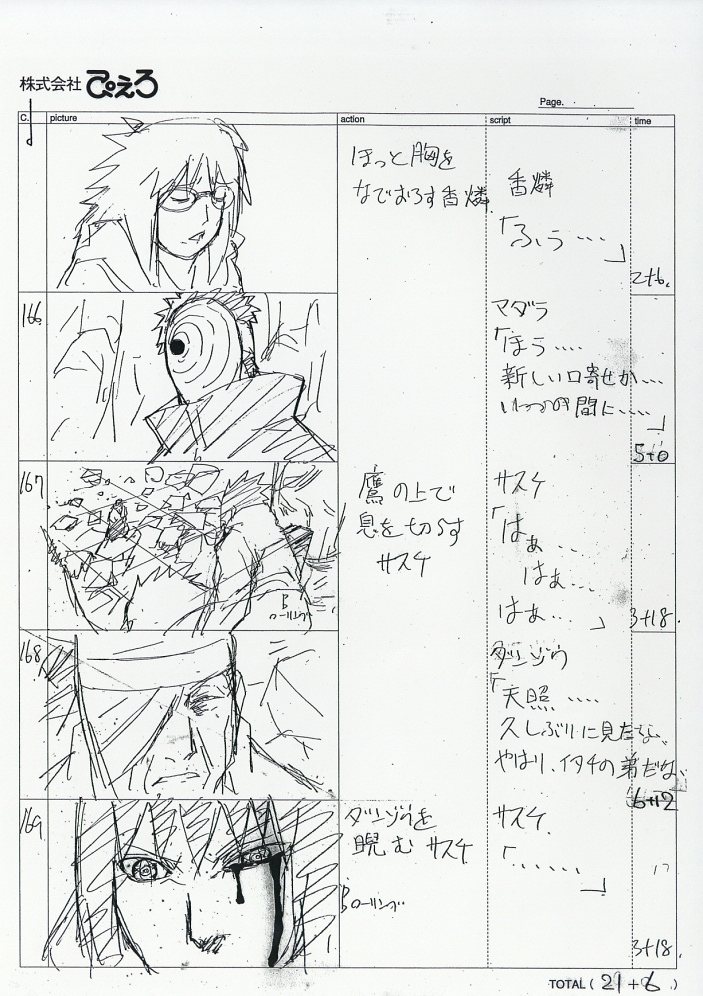 株式会社 ぴえろ
Page.
C. picture action script time
ほっと胸を
なでおろす香燐
香燐
「ふぅ…
」
2+6.
166
マダラ
「ほう….
新しい口寄せか…
いつの間に…..
」
5+0
167
鷹の上で
息を切らす
サスケ
サスケ
「はぁ…
はぁ…
はぁ…」
B
ローリング
3+18.
168
ダンゾウ
「天照 ….
久しぶりに見たな、
やはり、イタチの弟だな
6+12
169
ダンゾウを
睨む サスケ
Bローリング
サスケ
「……
」
3+18.
TOTAL ( 21 + 6 )